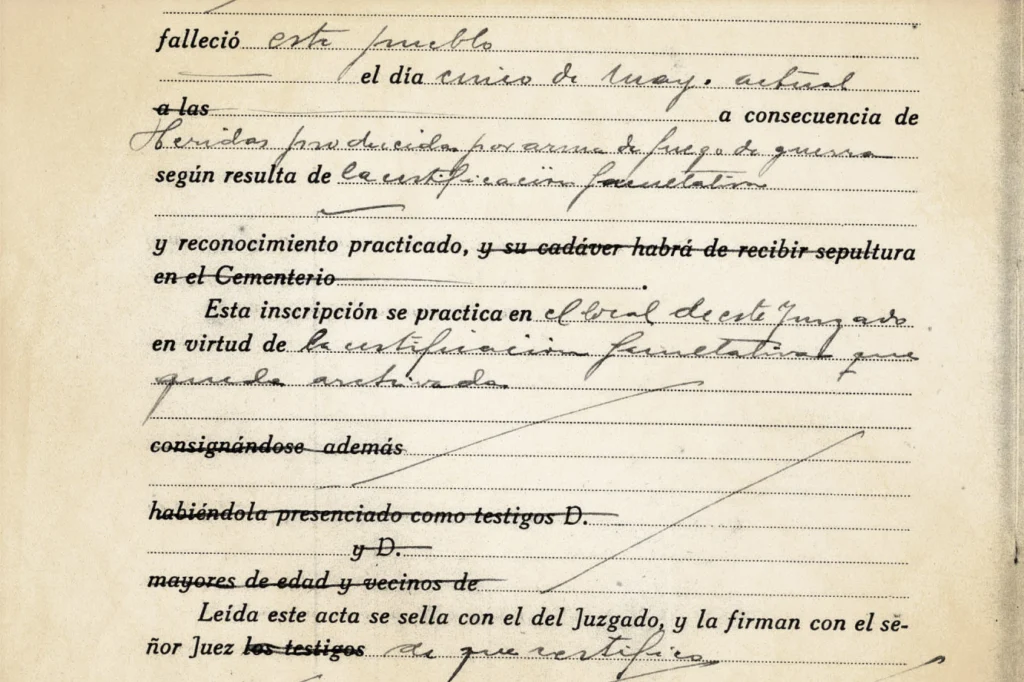 falleció este pueblo
el día cinco de May. actual
a las a consecuencia de
Heridas producidas por arma de fuego de guerra
según resulta de la certificación facultativa
y reconocimiento practicado, y su cadáver habrá de recibir sepultura
en el Cementerio .
Esta inscripción se practica en el local de este Juzgado
en virtud de la certificación facultativa que
queda archivada
consignándose además
habiéndola presenciado como testigos D.
y D.
mayores de edad y vecinos de
Leída este acta se sella con el del Juzgado, y la firman con el se-
ñor Juez los testigos de que certifico